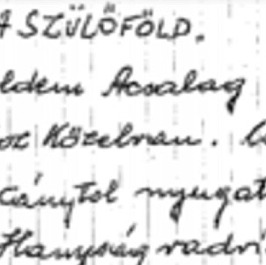 A SZÜLŐFÖLD.
ldem Acsalag
oz Közelvan.
cánytol nyugat
Hanyság radvi